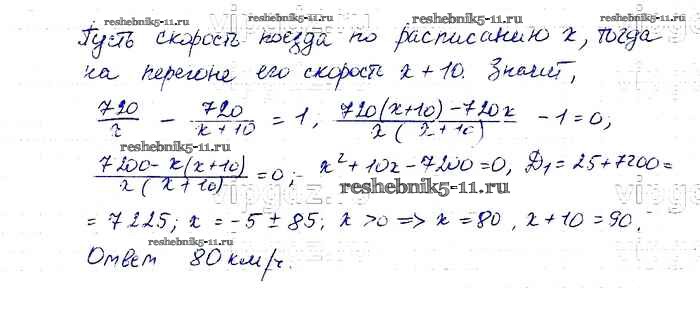 reshebnik5-11.ru reshebnik5-11.ru
Пусть скорость поезда по расписанию x, тогда
на перегоне его скорость x + 10. Значит,
720/x - 720/(x+10) = 1; (720(x+10) - 720x)/(x(x+10)) - 1 = 0;
reshebnik5-11.ru
(7200 - x(x+10))/(x(x+10)) = 0; x² + 10x - 7200 = 0, D₁ = 25 + 7200 =
reshebnik5-11.ru
= 7225; x = -5 ± 85; x > 0 => x = 80, x + 10 = 90.
reshebnik5-11.ru
Ответ 80 км/ч.